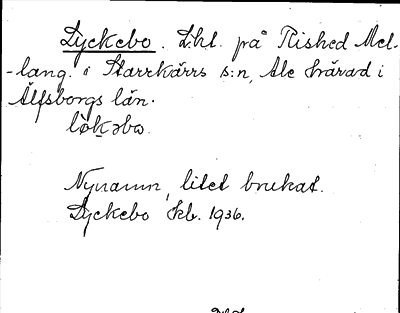 Lyckebo. L:ht. på Rished Mel-
-lang. i Starrkärrs s:n, Ale härad i
Älfsborgs län.
lỳkəbo.
Nynamn, litet brukat.
Lyckebo Jkb. 1936.